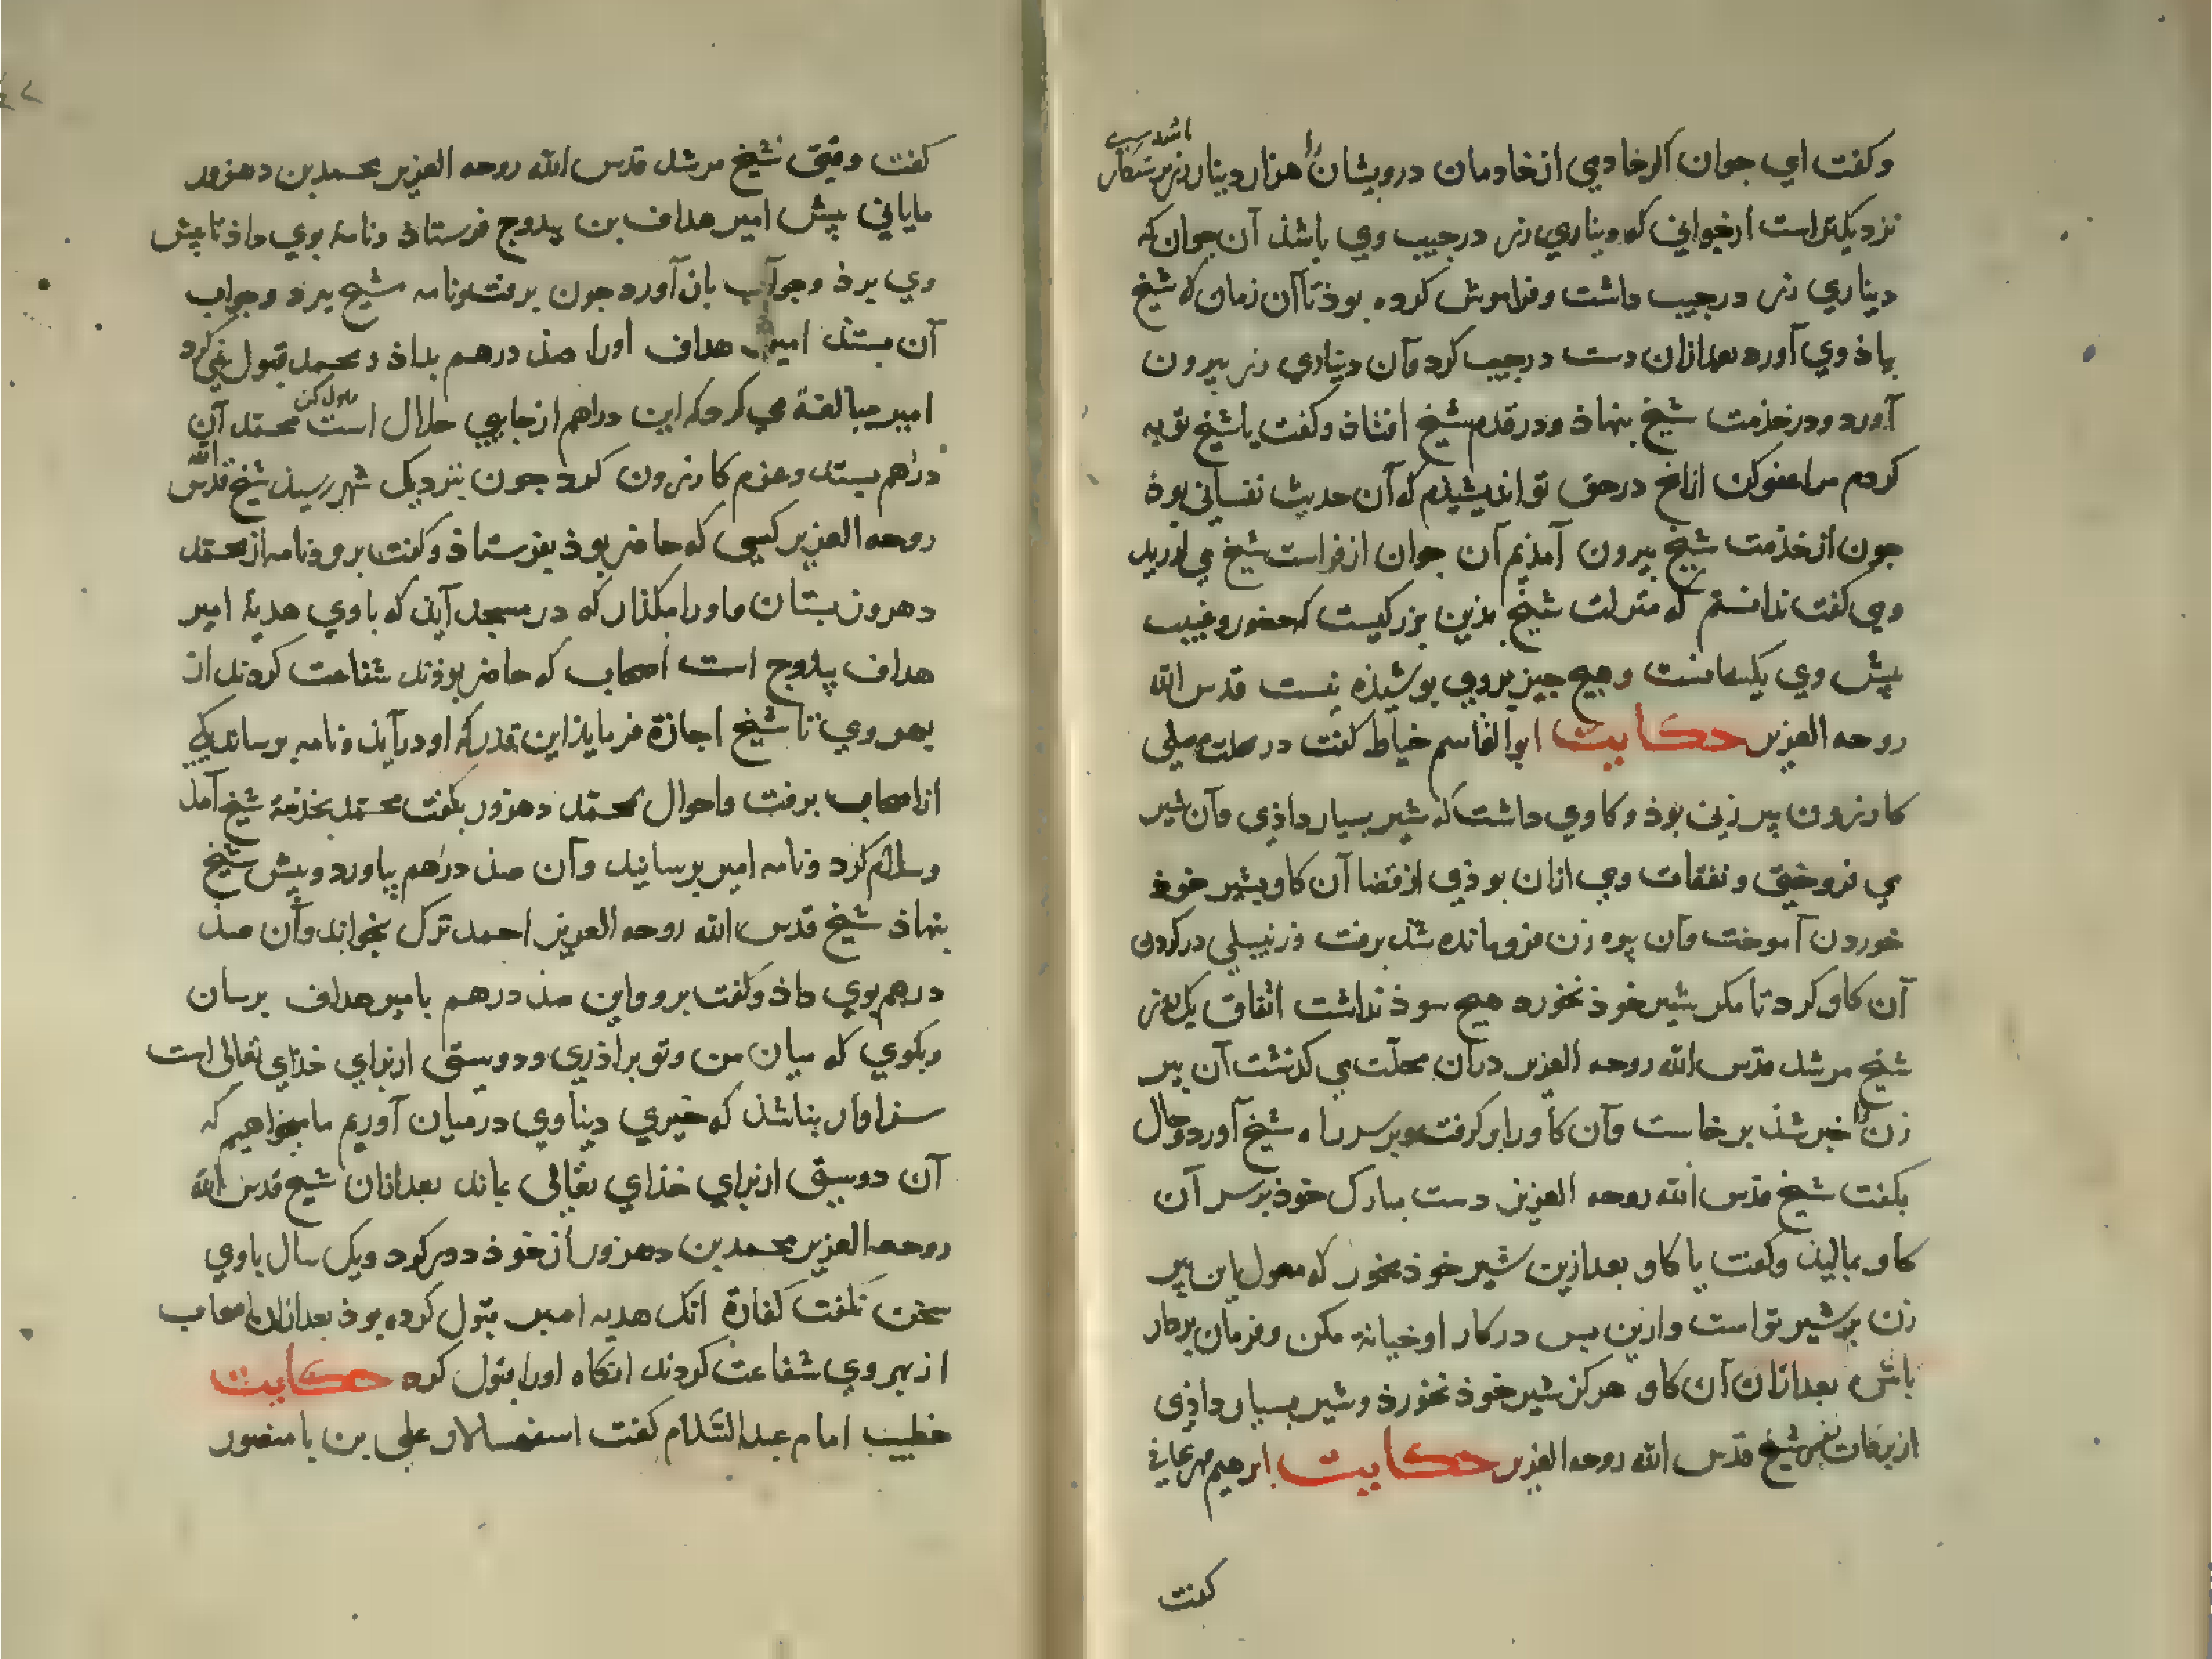 باشد بهی
وکفت ای جوان اکر خادمی از خادمان درویشان را هزار دینار زر برستکار
نزدیکتر است از خوانی که دیناری زر در جیب وی باشذ آن جوان که
دیناری زر در جیب داشت و فراموش کرده بوذ تا آن زمان که شیخ
بیاذ وی آورد بعد ازان دست در جیب کرد و آن دیناری زر بیرون
آورد و در خذمت شیخ بنهاذ و در قدم شیخ افتاذ وکفت یا شیخ توبه
کردم مرا عفو کن ازانچ در حق تو اندیشیذم که آن حدیث نفسانی بوذ
جون از خذمت شیخ بیرون آمذیم آن جوان از فراست شیخ می لرزید
ومی کفت ندانستم که منزلت شیخ بذین بزرکیست که حضور و غیبت
پیش وی یکسانست وهیچ جیز بر وی پوشیذه نیست قدس الله
روحه العزیز حکایت ابوالقاسم خیاط کفت در محلت میلی
کازرون پیر زنی بوذ و کاوی داشت که شیر بسیار داذی و آن شیر
می فروختی و نفقات وی ازان بوذی از قضا آن کاو بشیر خوذ
خوردن آموخت و آن پیره زن فرو مانده شذ برفت و زنبیلی در کردن
آن کاو کرد تا مکر شیر خوذ نخورد هیچ سوذ نداشت اتفاق یک روز
شیخ مرشد قدس الله روحه العزیز در آن محلت می کذشت آن پیر
زن را خبر شذ برخاست و آن کاو را بر کرفت و بر سر راه شیخ آورد و حال
بکفت شیخ قدس الله روحه العزیز دست مبارک خوذ بر سر آن
کاو بمالیذ وکفت یا کاو بعد ازین شیر خوذ مخور که معول این پیر
زن بر شیر تو است وازین پس در کار او خیانة مکن و فرمان بردار
باش بعد ازان آن کاو هرکز شیر خوذ نخورذ و شیر بسیار داذی
از برکات نفس شیخ قدس الله روحه العزیز حکایت ابرهیم مهرجانی
کفت
کفت وقتی شیخ مرشد قدس الله روحه العزیز محمد بن دهزور
مایانی پیش امیر هداف بن پدوج فرستاذ و نامه بوی داذ تا پیش
وی برذ و جواب باز آورد جون برفت و نامه شیخ ببرد و جواب
آن بستذ امیر هداف اورا صذ درهم بداذ و محمد قبول نمی کرد
امیر مبالغة می کرد که این دراهم از جایی حلال است قبول کن محمد آن
دراهم بستد و عزم کازرون کرد جون بنزدیک شهر رسیذ شیخ قدس الله
روحه العزیز کسی که حاضر بوذ بفرستاذ وکفت برو و نامه از محمد
دهروز بستان و اورا مکذار که در مسجد آیذ که با وی هدیۀ امیر
هداف پدوج است اصحاب که حاضر بوذند شفاعت کردند از
بهر وی تا شیخ اجازة فرمایذ این قدر که او در آیذ و نامه برساند یکی
از اصحاب برفت و احوال محمد دهزور بکفت محمد بخذمة شیخ آمذ
وسلام کرد و نامه امیر برسانید و آن صذ دراهم بیاورد و پیش شیخ
بنهاذ شیخ قدس الله روحه العزیز احمد ترک بخواند و آن صذ
درهم بوی داذ وکفت برو و این صذ درهم بامیر هداف برسان
وبکوی که میان من و تو براذری و دوستی از برای خذای تعالی است
سزاوار نباشذ که خیری دیناوی در میان آوریم ما میخواهیم که
آن دوستی از برای خذای تعالی بماند بعد ازان شیخ قدس الله
روحه العزیز محمد بن دهزور از خوذ دور کرد ویک سال با وی
سخن نکفت کفارة انک هدیه امیر قبول کرده بوذ بعد ازان اصحاب
از بهر وی شفاعت کردند انکاه اورا قبول کرد حکایت
خطیب امام عبد السلام کفت اسفهسالار علی بن با منصور